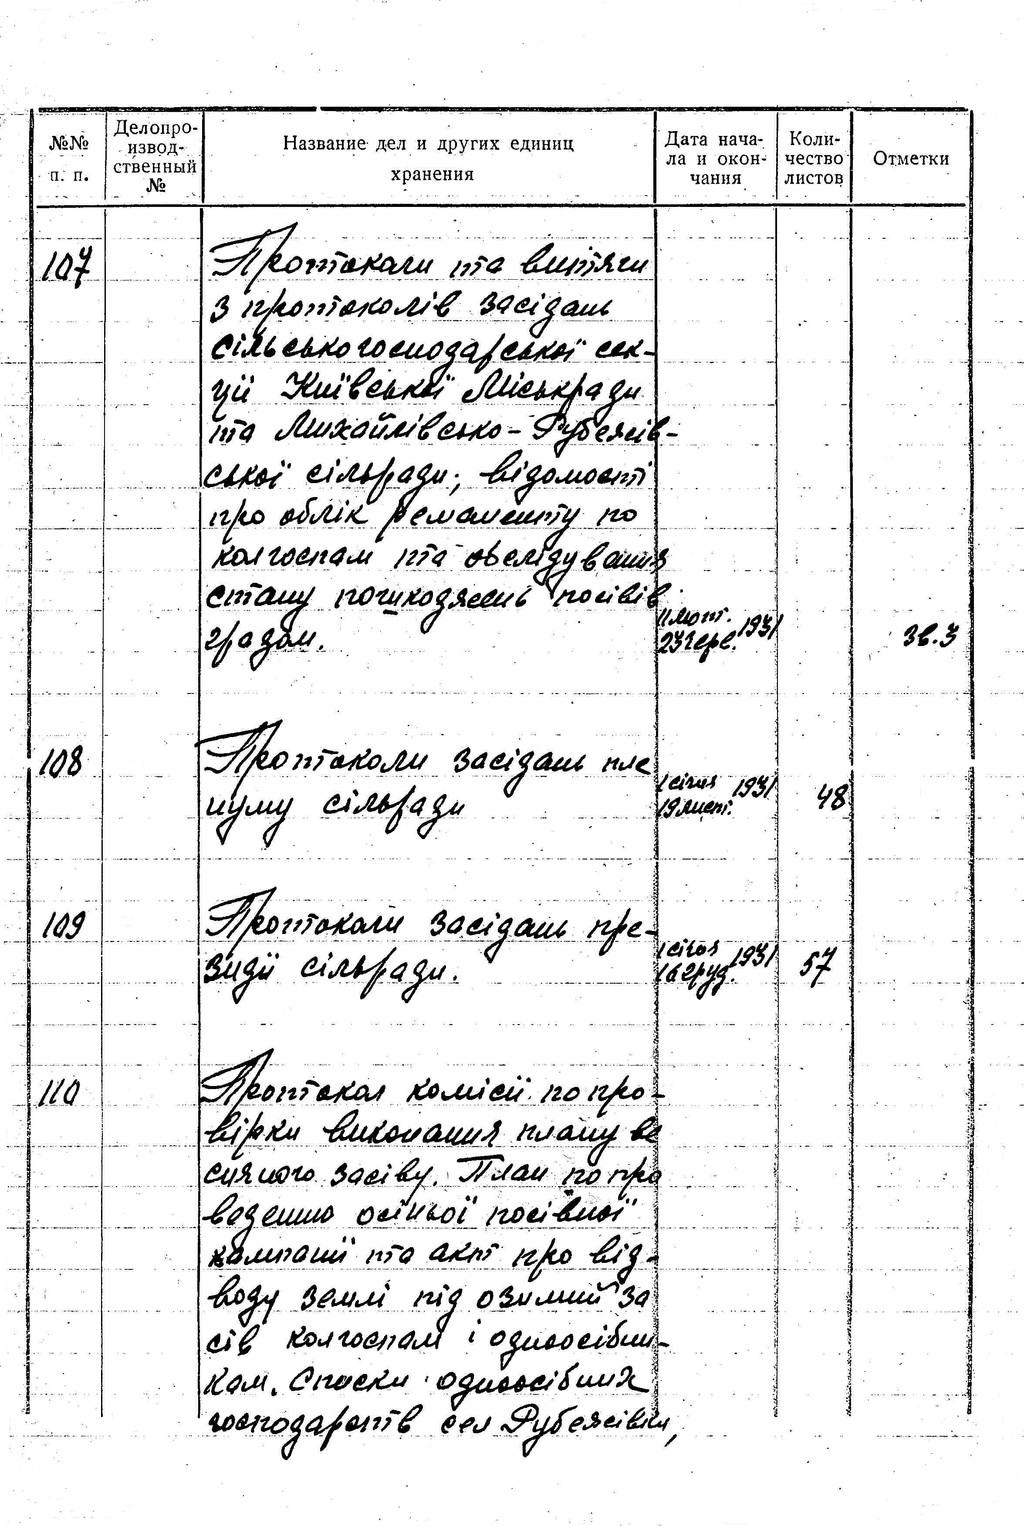 №№ п. п.
Делопроизводственный №
Название дел и других единиц хранения
Дата начала и окончания
Количество листов
Отметки
107
Протоколи та витяги
з протоколів засідань
сільськогосподарської сек-
ції Київської Міськради
та Михайлівсько-Рубежів-
ської сільради; відомості
про облік реманенту по
колгоспам та обслідування
стану пошкоджень посівів
градом.
11 лют. 1931
23 черв.
Зв. 3
108
Протоколи засідань пле
нуму сільради
1 січня 1931
19 лист.
48
109
Протоколи засідань пре-
зидії сільради.
1 січня 1931
16 груд.
57
110
Протокол комісії по про-
вірки виконання плану ве
сняного засіву. План по про
веденню осіньої посівної
кампанії та акт про від-
воду землі під озимий за
сів колгоспам і одноосібни-
кам. Списки одноосібних
господарств сел Рубежівки,